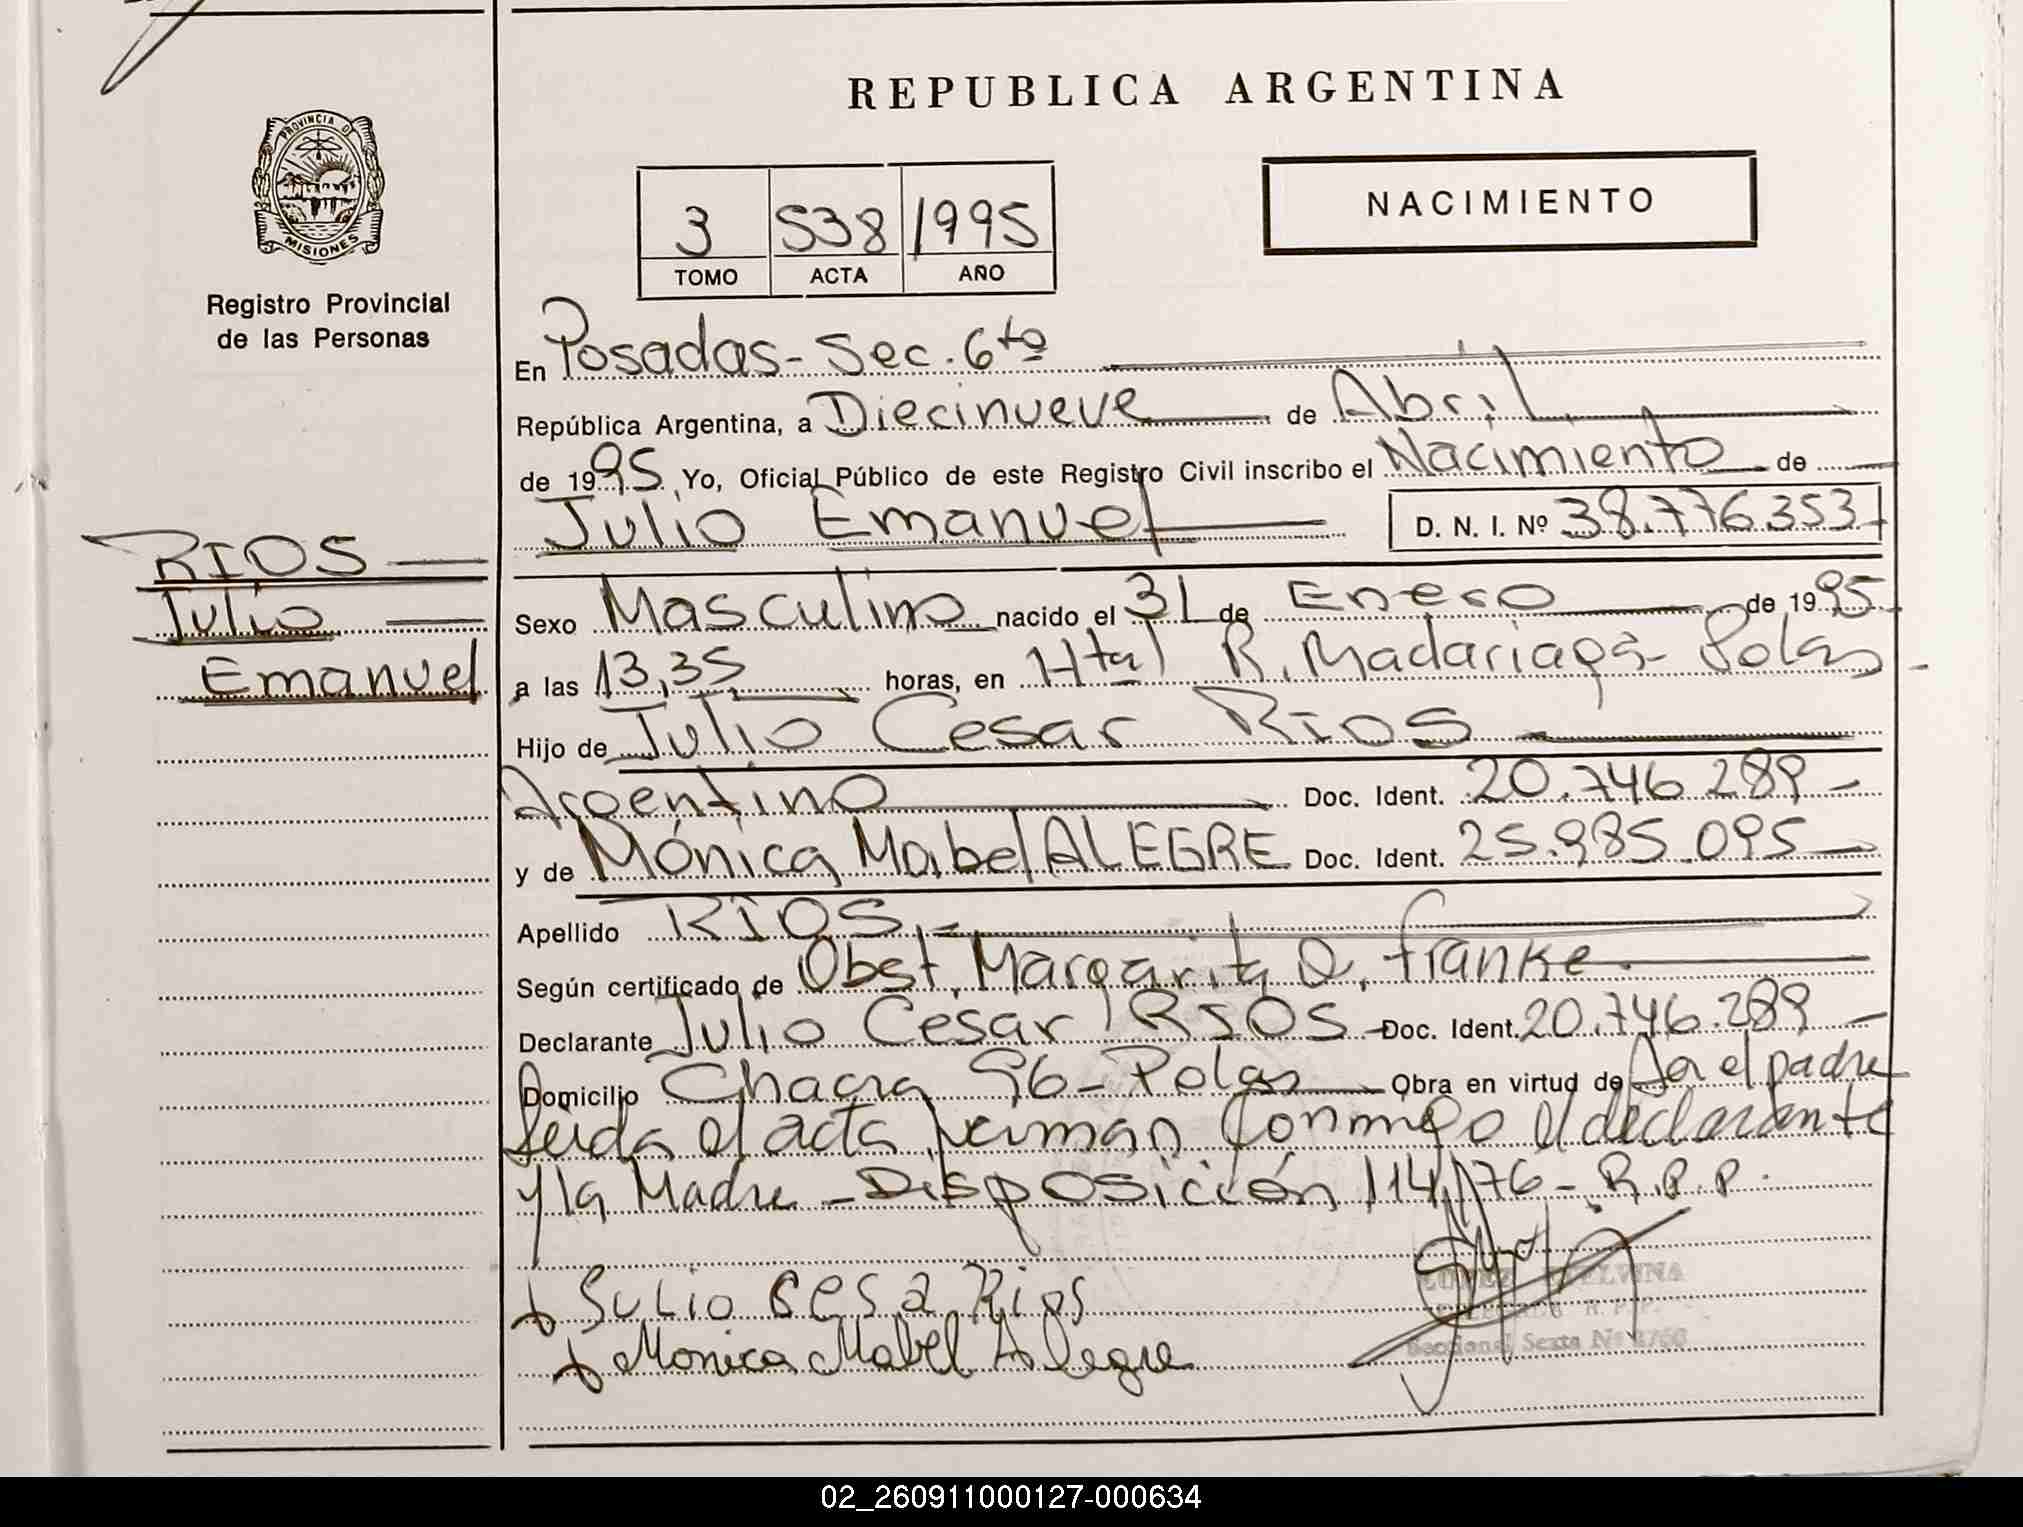 REPUBLICA ARGENTINA
PROVINCIA D
MISIONES
Registro Provincial
de las Personas
NACIMIENTO
3 538 1995
TOMO ACTA AÑO
En Posadas - Sec. 6ta
República Argentina, a Diecinueve de Abril
de 1995 Yo, Oficial Público de este Registro Civil inscribo el Nacimiento de
Julio Emanuel D. N. I. Nº 38.776.353
RIOS
Julio
Emanuel
Sexo Masculino nacido el 31 de Enero de 1995
a las 13,35 horas, en Htal R. Madariaga - Pdas -
Hijo de Julio Cesar RIOS
Argentino Doc. Ident. 20.746.289 -
y de Mónica Mabel ALEGRE Doc. Ident. 25.985.095
Apellido RIOS
Según certificado de Obst. Margarita Franke
Declarante Julio Cesar RIOS - Doc. Ident. 20.746.289 -
Domicilio Chacra 96 - Pdas Obra en virtud de Ser el padre
Leida el acta firman conmigo el declarante
y la Madre - Disposición 114/76 - R.P.P.
Julio Cesa Rios
Monica Mabel Alegre
R.P.P.
Seccional Sexta Nº
02_260911000127-000634